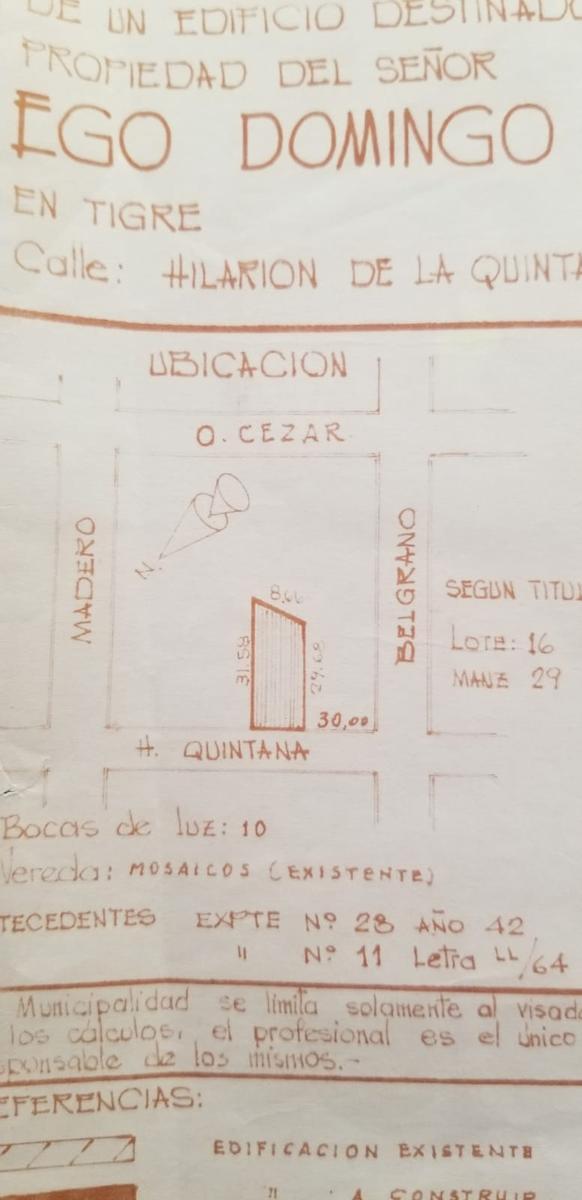 DE UN EDIFICIO DESTINADO
PROPIEDAD DEL SEÑOR
EGO DOMINGO
EN TIGRE
Calle: HILARION DE LA QUINTA
UBICACION
O. CEZAR
MADERO
N.
BELGRANO
8,66
31.58
29.68
30,00
SEGUN TITUL
LOTE: 16
MANZ 29
H. QUINTANA
Bocas de luz: 10
Vereda: MOSAICOS (EXISTENTE)
TECEDENTES EXPTE Nº 28 AÑO 42
" Nº 11 Letra LL/64
Municipalidad se limita solamente al visado
los cálculos, el profesional es el único
sponsable de los mismos.-
EFERENCIAS:
EDIFICACION EXISTENTE
" A CONSTRUIR